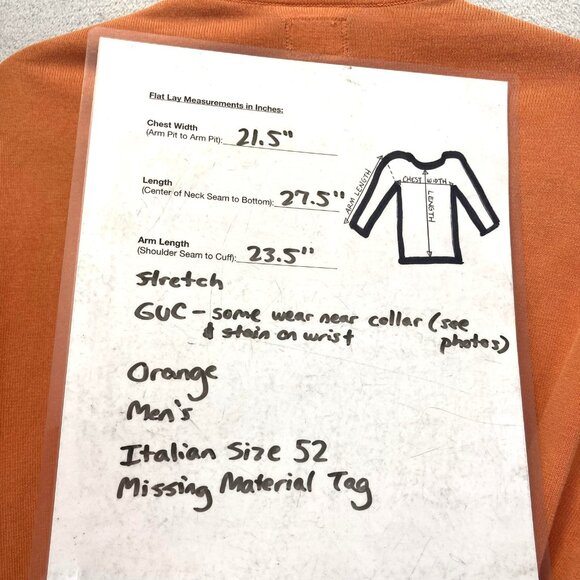 Flat Lay Measurements in Inches:
Chest Width
(Arm Pit to Arm Pit): 21.5"
Length
(Center of Neck Seam to Bottom): 27.5"
Arm Length
(Shoulder Seam to Cuff): 23.5"
ARM LENGTH
CHEST WIDTH
LENGTH
Stretch
GUC - some wear near collar (see
& stain on wrist photos)
Orange
Men's
Italian Size 52
Missing Material Tag